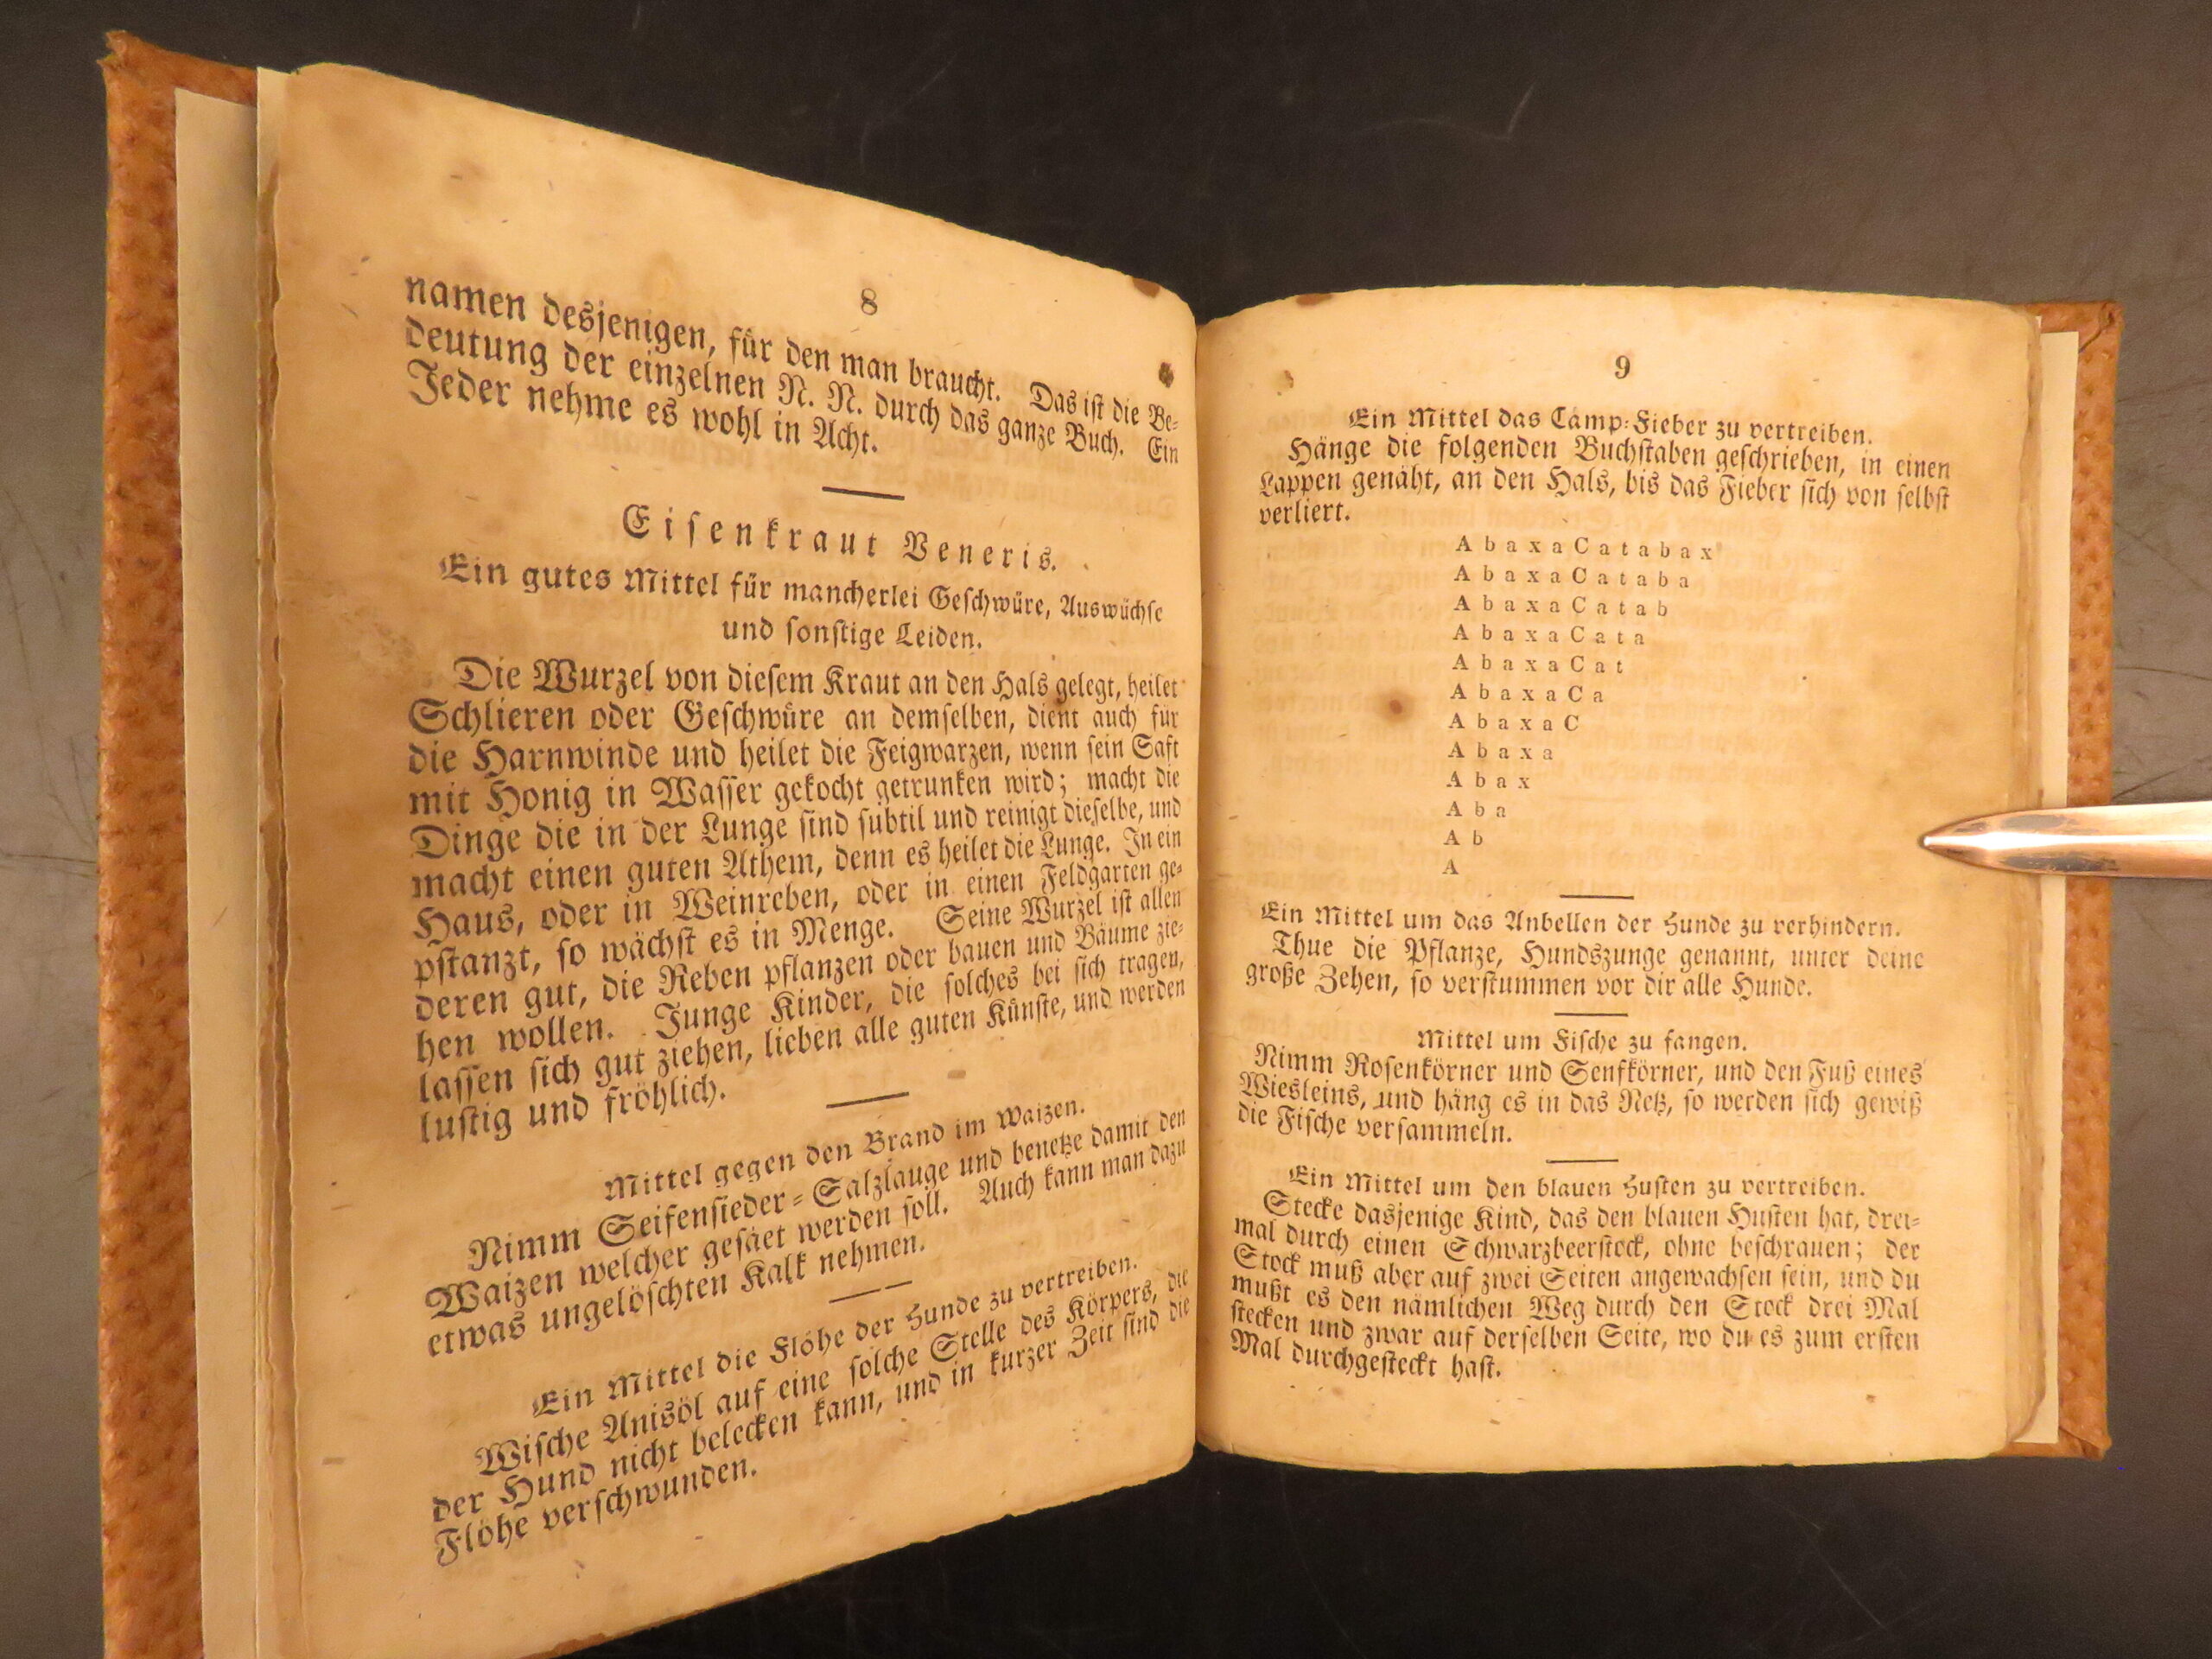 8
namen desjenigen, für den man braucht. Das ist die Be=
deutung der einzelnen N. N. durch das ganze Buch. Ein
Jeder nehme es wohl in Acht.
Eisenkraut Veneris.
Ein gutes Mittel für mancherlei Geschwüre, Auswüchse
und sonstige Leiden.
Die Wurzel von diesem Kraut an den Hals gelegt, heilet
Schlieren oder Geschwüre an demselben, dient auch für
die Harnwinde und heilet die Feigwarzen, wenn sein Saft
mit Honig in Wasser gekocht getrunken wird; macht die
Dinge die in der Lunge sind subtil und reinigt dieselbe, und
macht einen guten Athem, denn es heilet die Lunge. In ein
Haus, oder in Weinreben, oder in einen Feldgarten ge=
pstanzt, so wächst es in Menge. Seine Wurzel ist allen
deren gut, die Reben pflanzen oder bauen und Bäume zie=
hen wollen. Junge Kinder, die solches bei sich tragen,
lassen sich gut ziehen, lieben alle guten Künste, und werden
lustig und fröhlich.
Mittel gegen den Brand im Waizen.
Nimm Seifensieder=Salzlauge und benetze damit den
Waizen welcher gesäet werden soll. Auch kann man dazu
etwas ungelöschten Kalk nehmen.
Ein Mittel die Flöhe der Hunde zu vertreiben.
Wische Anisöl auf eine solche Stelle des Körpers, die
der Hund nicht belecken kann, und in kurzer Zeit sind die
Flöhe verschwunden.
9
Ein Mittel das Camp=Fieber zu vertreiben.
Hänge die folgenden Buchstaben geschrieben, in einen
Lappen genäht, an den Hals, bis das Fieber sich von selbst
verliert.
AbaxaCatabax
AbaxaCataba
AbaxaCatab
AbaxaCata
AbaxaCat
AbaxaCa
AbaxaC
Abaxa
Abax
Aba
Ab
A
Ein Mittel um das Anbellen der Hunde zu verhindern.
Thue die Pflanze, Hundszunge genannt, unter deine
große Zehen, so verstummen vor dir alle Hunde.
Mittel um Fische zu fangen.
Nimm Rosenkörner und Senfkörner, und den Fuß eines
Wiesleins, und häng es in das Netz, so werden sich gewiß
die Fische versammeln.
Ein Mittel um den blauen Husten zu vertreiben.
Stecke dasjenige Kind, das den blauen Husten hat, drei=
mal durch einen Schwarzbeerstock, ohne beschrauen; der
Stock muß aber auf zwei Seiten angewachsen sein, und du
mußt es den nämlichen Weg durch den Stock drei Mal
stecken und zwar auf derselben Seite, wo du es zum ersten
Mal durchgesteckt hast.